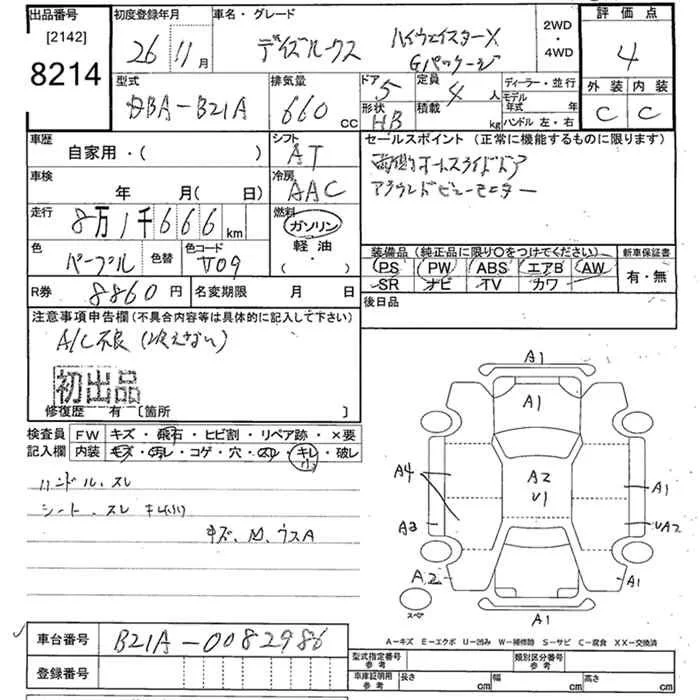 出品番号 初度登録年月 車名・グレード 2WD・4WD 評価点
[2142]
8214
26 11月 デイズルークス ハイウェイスターX Gパッケージ 4
型式 排気量 ドア 定員 ディーラー・並行 外装 内装
DBA-B21A 660 CC 5 4人 モデル年式 年 C C
形状 積載 ハンドル 左・右
HB kg
車歴 シフト セールスポイント(正常に機能するものに限ります)
自家用・( ) AT 両側オートスライドドア
車検 冷房 アラウンドビューモニター
年 月(日) AAC
走行 燃料
8万1千666km ガソリン
軽油
( ・ )
色 色替 色コード
パープル V09
装備品(純正品に限り○をつけてください) 新車保証書
PS PW ABS エアB AW 有・無
SR ナビ TV カワ
R券 8860円 名変期限 月 日
後日品
注意事項申告欄(不具合内容等は具体的に記入して下さい)
A/C不良(冷えない)
初出品
修復歴 有 [箇所 ]
検査員 FW キズ・飛石・ヒビ割・リペア跡・×要
記入欄 内装 キズ・汚レ・コゲ・穴・スレ・キレ・破レ
小
ハンドル、スレ
シート、スレ
A1
A1
A4 A2 U1 A1
A3 UA2
A2 A1
スペア A1
A-キズ E-エクボ U-凹み W-補修跡 S-サビ C-腐食 XX-交換済
車台番号 B21A-0082986
登録番号
型式指定番号 参考 類別区分番号 参考
車庫証明用 参考 長さ cm 幅 cm 高さ cm